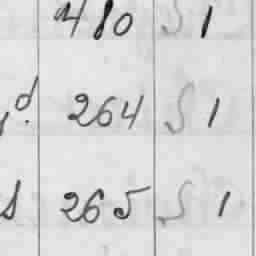 480 S 1
d. 264 S 1
s 265 S 1